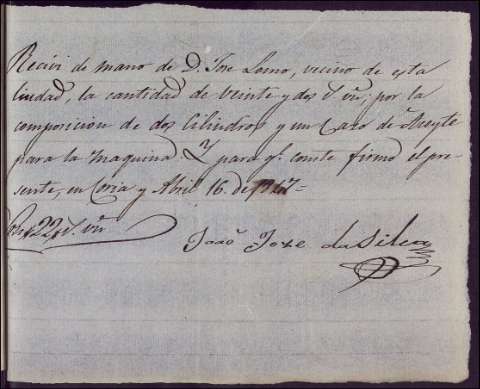 Recivi de mano de D. Jose Lomo, vecino de esta
Ciudad, la cantidad de veinte y dos r.s vn, por la
composicion de dos Cilindros y un Cazo de Aseyte
para la maquina. Y para q.e conste firmo el pre-
sente, en Coria y Abril 16. de 1847=
Son 22 r.s vn
Joaõ Joze da Silva